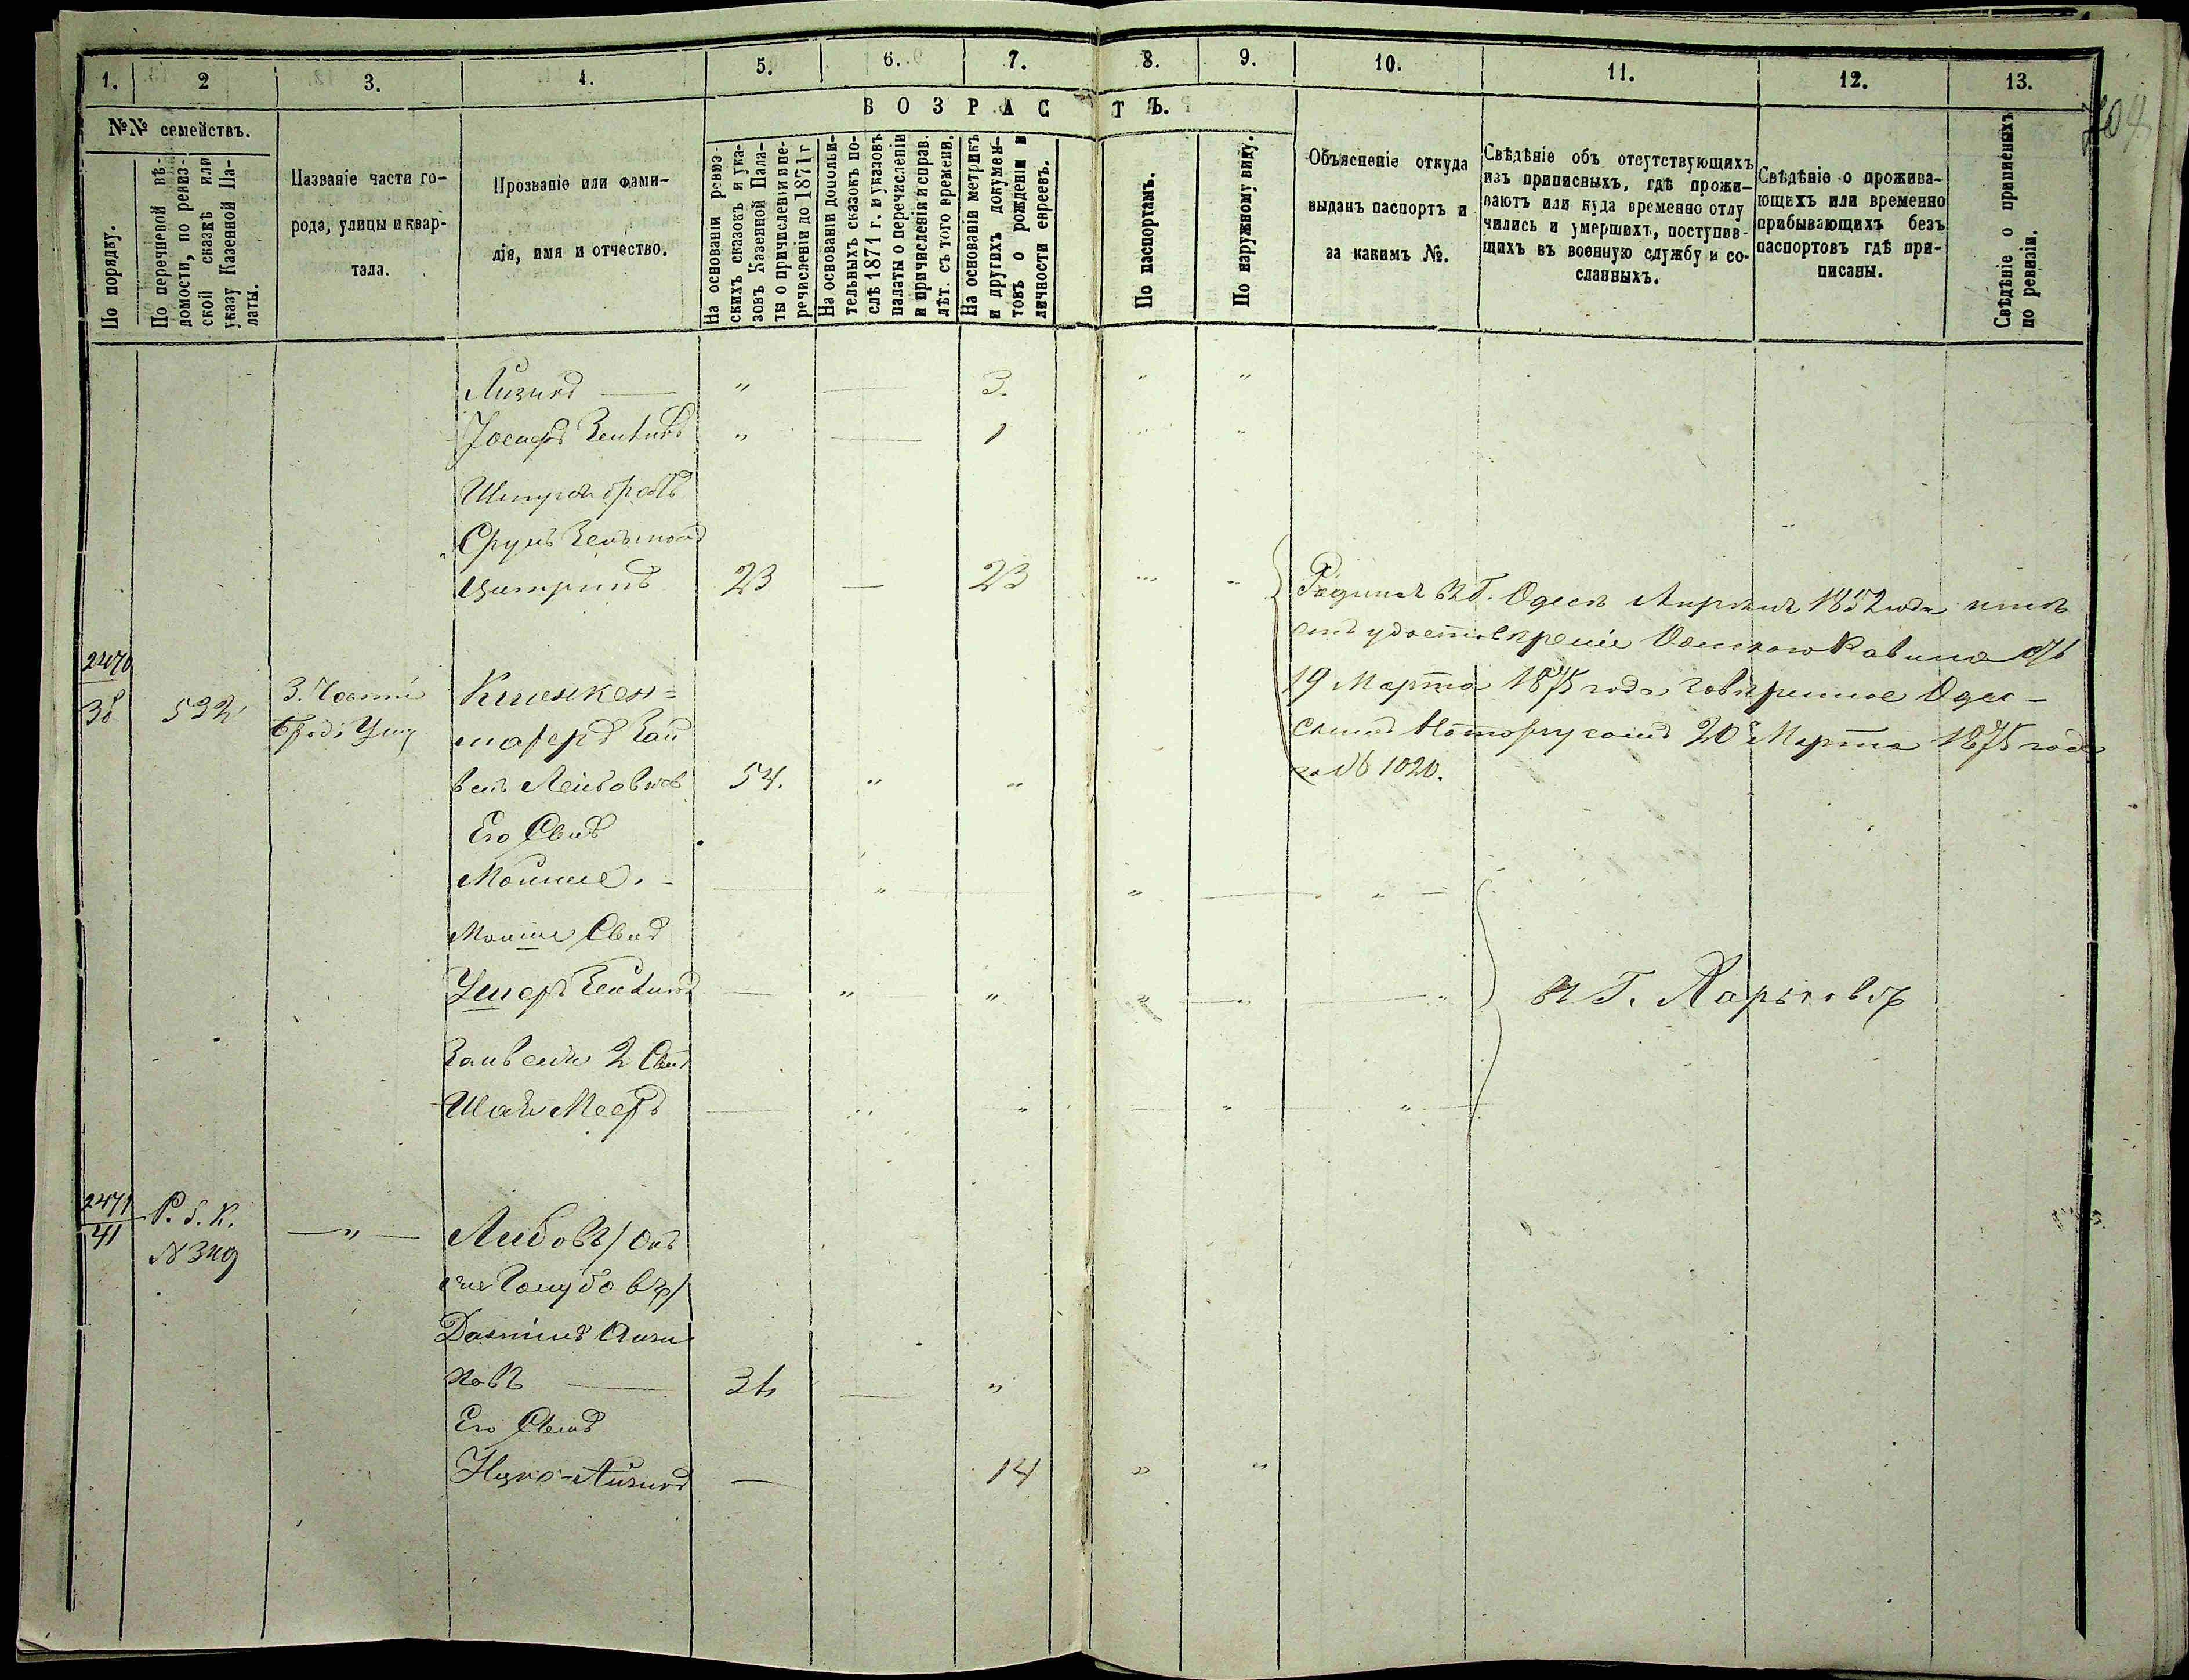 1. 2 3. 4. 5. 6. 7. 8. 9. 10. 11. 12. 13.
204
№№ семействъ.
По порядку.
По перечневой вѣ-
домости, по ревиз-
ской сказкѣ или
указу Казенной Па-
латы.
Названіе части го-
рода, улицы и квар-
тала.
Прозваніе или фами-
лія, имя и отчество.
ВОЗРАСТЪ.
На основаніи ревиз-
скихъ сказокъ и ука-
зовъ Казенной Пала-
ты о причисленіи и пе-
речисленіи до 1871 г
На основаніи дополни-
тельныхъ сказокъ по-
слѣ 1871 г. и указовъ
палаты о перечисленіи
и причисленіи и справ.
лѣт. съ того времени.
На основаніи метрикъ
и другихъ докумен-
товъ о рожденіи и
личности евреевъ.
По паспортамъ.
По наружному виду.
Объясненіе откуда
выданъ паспортъ и
за какимъ №.
Свѣдѣніе объ отсутствующихъ
изъ приписныхъ, гдѣ прожи-
ваютъ или куда временно отлу
чились и умершихъ, поступив-
щихъ въ военную службу и со-
сланныхъ.
Свѣдѣніе о прожива-
ющихъ или временно
прибывающихъ безъ
паспортовъ гдѣ при-
писаны.
Свѣдѣніе о приписныхъ
по ревизіи.
Айзикъ — " — 3. " "
" — 1
Срулъ
Цитринъ 23 — 23
Родился въ Г. Одессѣ Апрѣля 1852 года
удостовѣреніе Раввина отъ
19 Марта 1875 года Завѣренное Одес-
скимъ Нотаріусомъ 20 Марта 1875 года
за № 1020.
2470
38 532 3. Части
Зай
вель Лейбовъ 54. " "
Его Сынъ
Мойше
Мойше Сынъ
Ушеръ
Зайвеля 2 Сынъ
Шая Мееръ
въ Г. Харьковѣ
2471
41 Р. б. К.
№ 349
— " — Либовъ / Онъ
же Голубовъ /
Айзи
ковъ — 31 — "
Его Сынъ
Ицко-Айзикъ — 14 " "